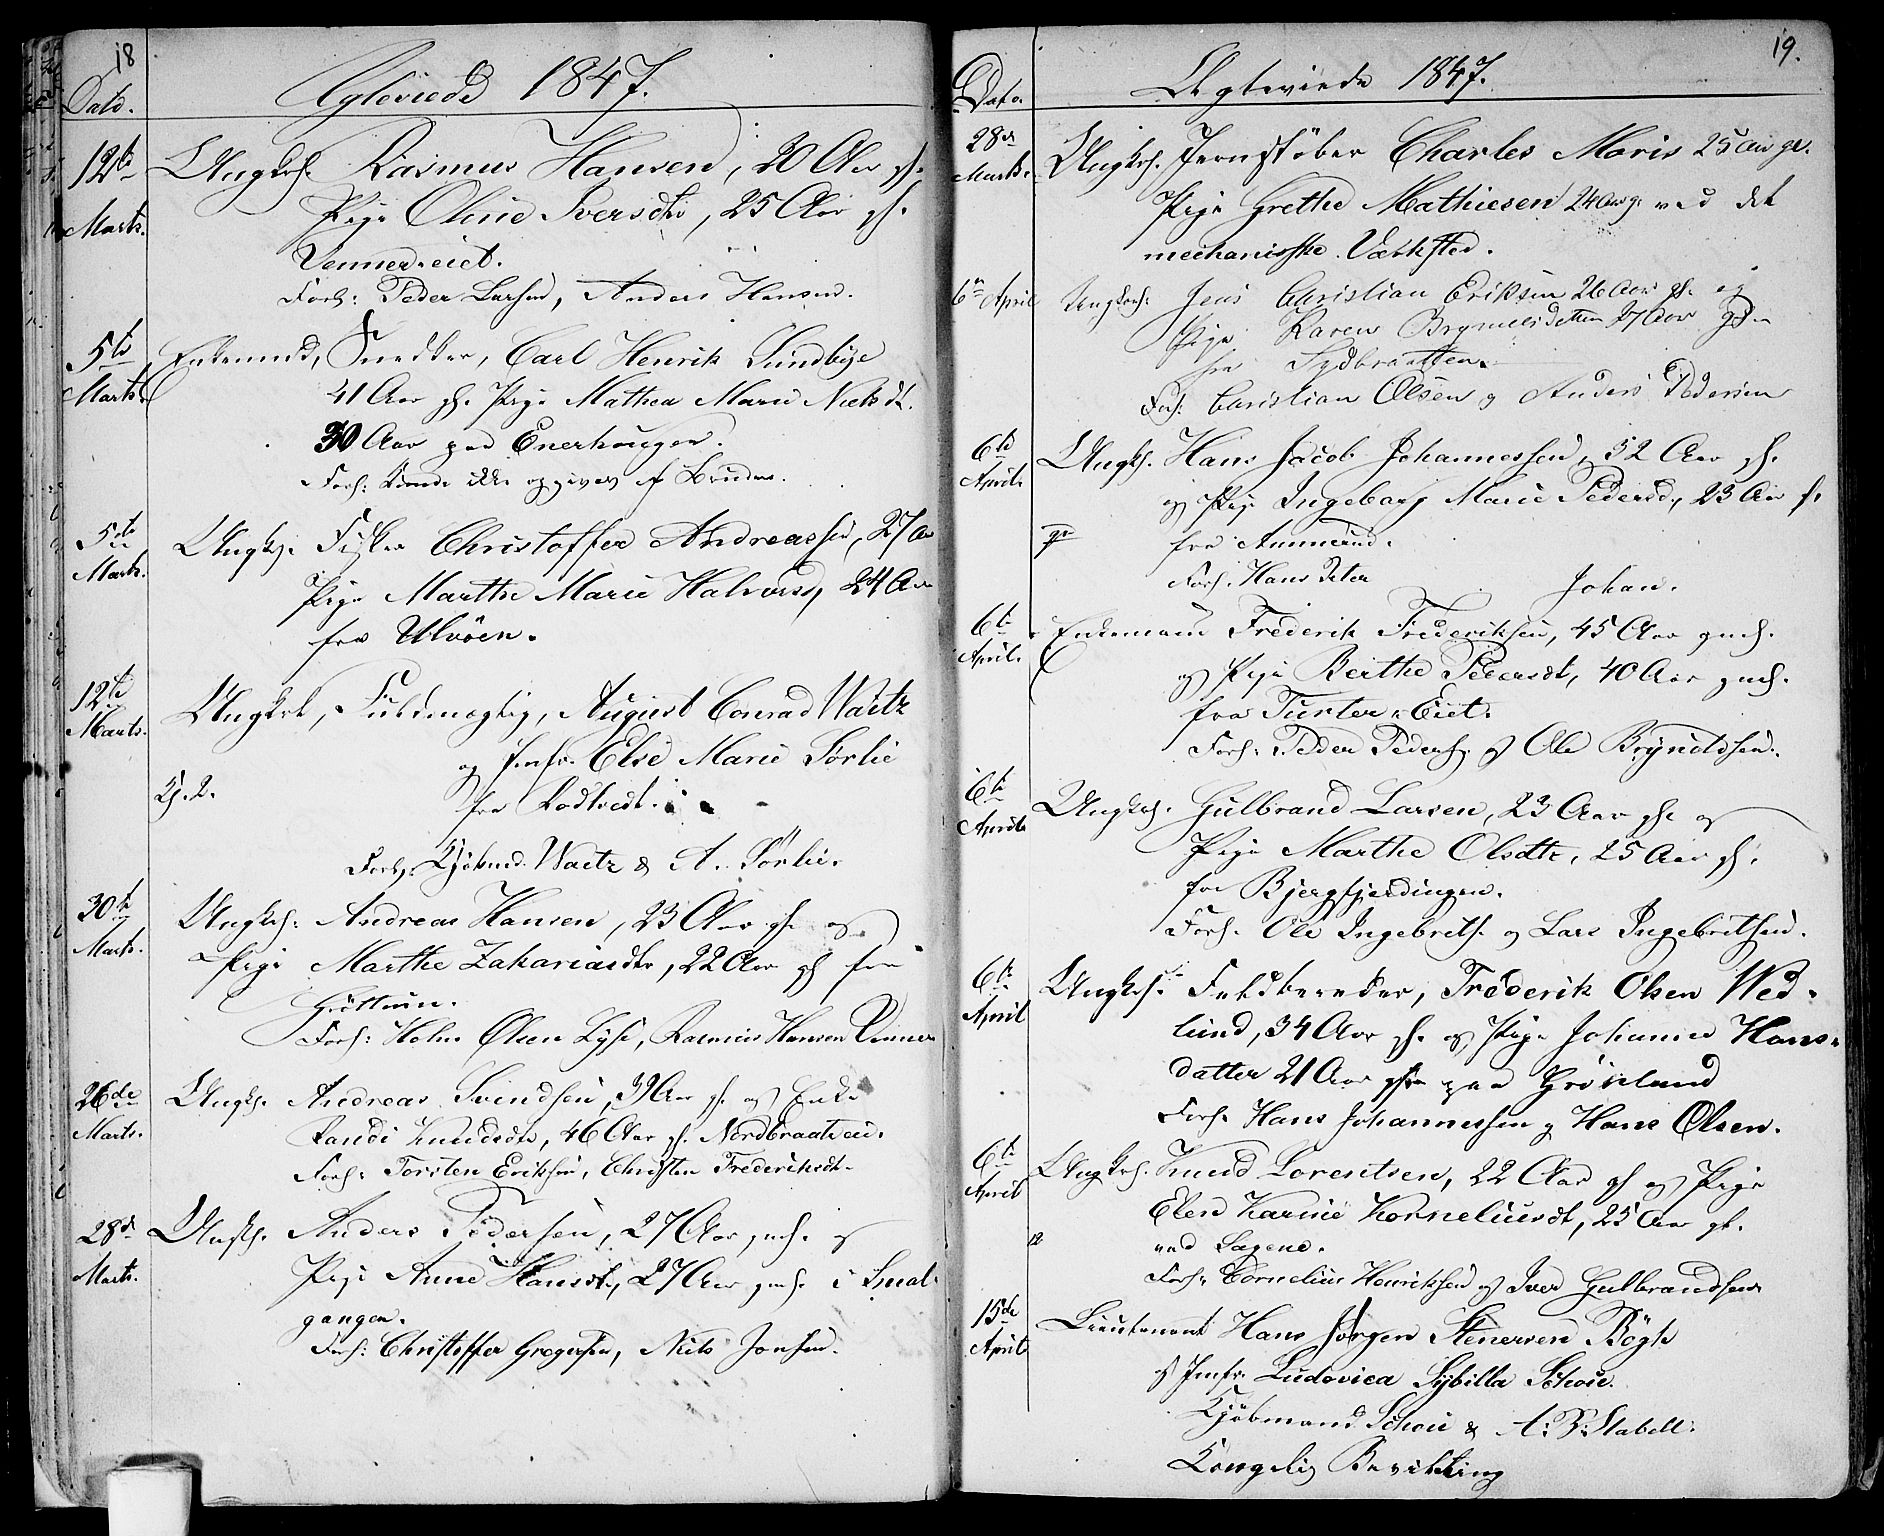 18
Dato. Ægteviede 1847.
12te Marts. Ungk. Rasmus Hansen, 30 Aar gl.
Pige Oline Iversdtr, 25 Aar gl.
Vennereiet.
Forl: Peder Larsen, Anders Hansen.
5te Marts. Enkemand, Snedker, Carl Henrik Sundbye
41 Aar gl. Pige Mathea Marie Nielsdt.
30 Aar paa Enerhougen.
Forl: kunde ikke opgives af Bruden.
5te Marts. Ungk. Fisker Christoffer Andreassen, 27 Aar
Pige Marthe Marie Halvorsd, 24 Aar
fra Ulvöen.
12te Marts. Ungkrl, Fuldmægtig, August Conrad Waitz
og Jmfr. Else Marie Sørlie
fra Rødtvedt.
Forl. Kjöbmd. Waitz & A. Sørlie.
30te Marts. Ungkrl. Andreas Hansen, 23 Aar gl. og
Pige Marthe Zakariasdtr, 22 Aar gl fra
Forl: Holm Olsen Lysé, Rasmus Hansen
26de Marts. Ungk. Andreas Svendsen, 39 Aar gl. og Enke
Randi Knudsdtr, 46 Aar gl. Nordbraateneie.
Forl: Torsten Eriksen, Christen Frederiksdt.
28de Marts. Ungk. Anders Pedersen, 27 Aar gml. og
Pige Anne Hansdt, 27 Aar gml. i Smal-
gangen.
Forl: Christoffer Gregersen, Niels Jonsen.
19.
Dato. Ægteviede 1847.
28de Marts. Ungkrl. Jernstöber Charles Moris 25 Aar gl.
Pige Grethe Mathiesen 24 Aar gl ved det
mechaniske Værksted.
6te April Ungkarl. Jens Christian Eriksen 26 Aar gl. og
Pige Karen Brynildsdatter 27 Aar gl.
fra Sydbraatten.
Forl. Christian Olsen og Anders Pedersen
6te April. Ungk. Hans Jacob Johannessen, 32 Aar gl.
og Pige Ingeborg Marie Pedersd, 23 Aar gl.
fra Ammerud.
Forl. Hans Peter Johan.
6te April. Enkemand Frederik Frederiksen, 45 Aar gml.
og Pige Berthe Pedersdt, 40 Aar gml.
fra Turter Eiet.
Forl: Peder Peders. og Ole Bryndlsen.
6te April Ungkrl. Gulbrand Larsen, 23 Aar gl. og
Pige Marthe Olsdtr, 25 Aar gl.
fra Bjergfjerdingen.
Forl. Ole Ingebrets. og Lars Ingebritsen.
6te April Ungkrl. Feldbereder, Frederik Olsen Wed-
lund, 34 Aar gl. og Pige Johanne Hans-
datter 21 Aar gl. paa Grönland
Forl. Hans Johannessen og Hans Olsen.
6te April Ungkrl. Knud Lorentsen, 22 Aar gl og Pige
Elen Karine Korneliusdt, 25 Aar gl.
ved Sagene.
Forl. Cornelius Henriksen og Iver Gulbrandsen
15de April Lieutenant Hans Jörgen Stenersen Bögh
og Jmfr. Ludovica Sybilla Schou.
Kjöbmand Schou & A. B. Stabell.
Kongelig Bevilling